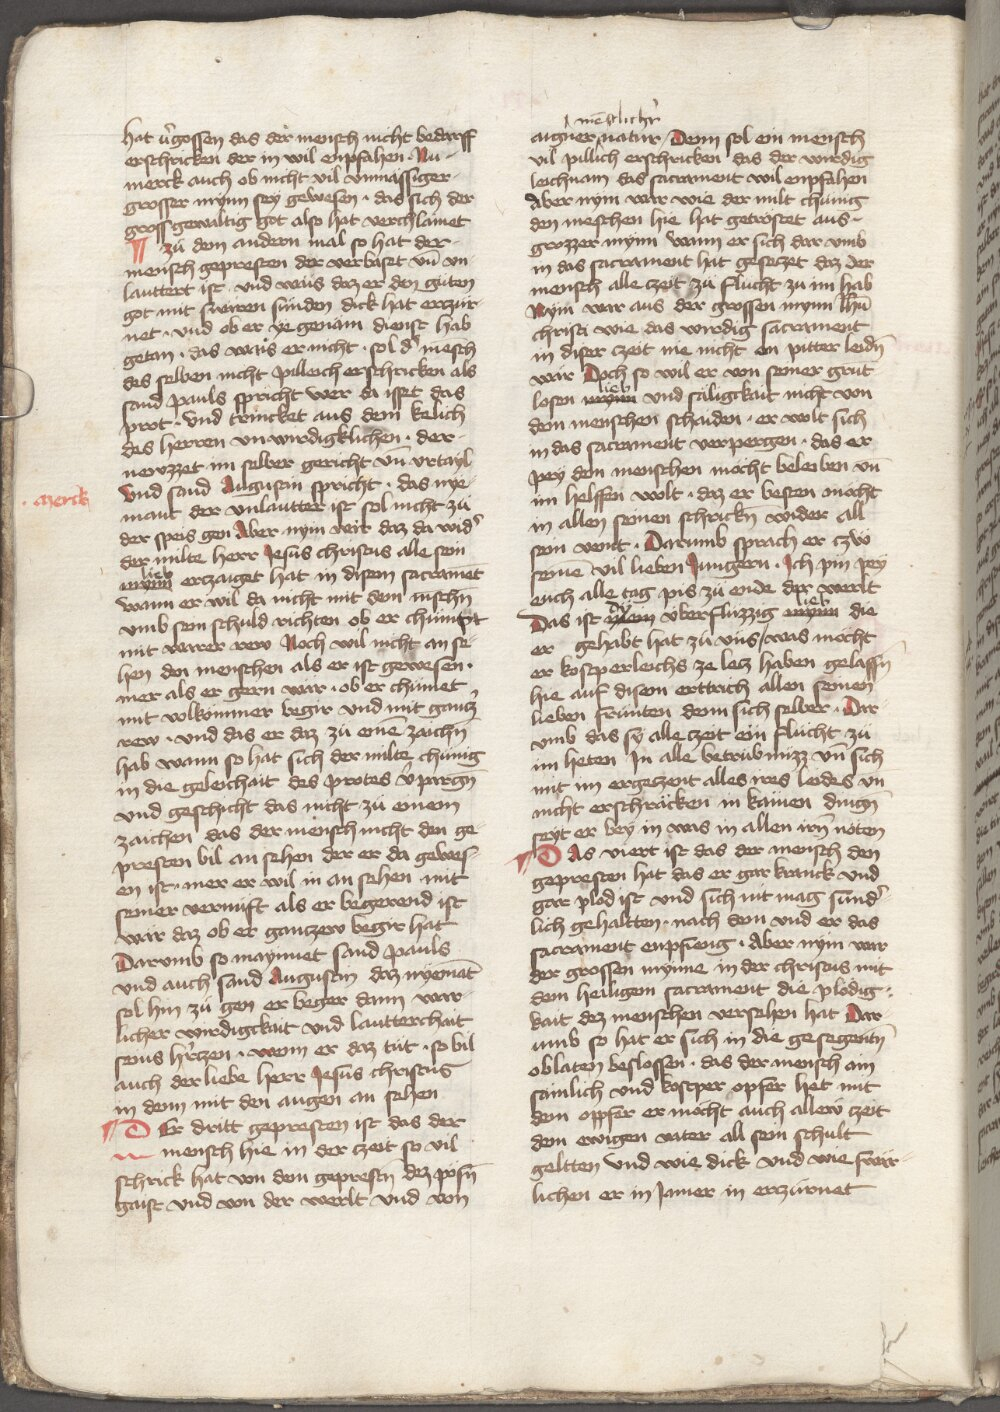 hat v̉gossen das der mensch nicht bedarff
erschricken der in wil enpfahen · Nu
merck auch ob nicht vil vnmassiger
grosser mynn sey gewesen · das sich der
grossgewaltig got also hat verchlainet
¶ zů dem andern mal so hat der
mensch gepresten der verbaist vn̄ vn
lauttert ist · vnd wais daz er den gůten
got mit swären sünden dick hat erczür
net · vnd ob er ye genäm dienst hab
getan · das wais er nicht · sol d' mēsch
des selben nicht pilleich erschricken als
sand pauls spricht wer da isset das
prot · vnd trincket aus dem kelich
des herren vnwirdigklichen · der
neuzzet im selber gericht vn̄ vrtayl
vnd sand Augustin spricht · das nye
mant der vnlautter ist sol nicht zů
· merck
der speis gen Aber nym war daz da wid'
der milte herr Jesus christus alle sein
lieb
mynn erczaiget hat in disem sacramēt
wann er wil da nicht mit dem mēschn̄
vmb sein schuld richten ob er chümpt
mit warer rew Noch wil nicht an se
hen den menschen als er ist gewesen ·
mer als er gern wär · ob er chümet
mit volkomner begir vnd mit gancz'
rew · vnd das er daz zů einē zaichn̄
hab wann so hat sich der milte chünig
in die geleichait des protes v̉pargn̄
vnd geschicht das nicht zů einem
zaichen das der mensch nicht den ge
presten bil an sehen der er da gewes
en ist · mer er wil in an sehen mit
seiner vernüft als er begerend ist
wär daz ob er ganczew begir hat
Darumb so maynnet sand pauls
vnd auch sand Augustin daz nyemāt
sol hin zů gen er beger dann war
licher wirdigkait vnd lautterchait
seins hr̄czen · wenn er daz tůt · so bil
auch der liebe herr Jesus christus
in denn mit den augen an sehen
¶ Der dritt gepresten ist das der
mensch hie in der czeit so vil
schrick hat von dem geprestn̄ dez pösn̄
gaist vnd von der werlt vnd von
mēslich'
aigner natur / Denn sol ein mensch
vil pillich erschricken das der wirdig
leichnam das sacrament wil enpfahen
Aber nym war wie der milt chünig
den meschen hie hat getröstet aus
grozzer mynn wann er sich dar vmb
in das sacrament hat geseczet daz der
mensch alle czeit zů flucht zů im hab
Nym war aus der grossen mynn Jhū
christi wie das wirdig sacrament
in diser czeit nie nicht en pitter leidn̄
wär Doch so wil er von seiner grūt
lieb
losen mynn vnd säligkait nicht von
dem menschen schaiden · er wolt sich
in das sacrament verpergen · das er
pey dem menschen möcht beleiben vn̄
im helffen wolt · daz er besten möcht
in allen seinen schrickn̄ wider all
sein veint · Darumb sprach er czw
seinē vil lieben Jungern · Ich pin pey
euch alle tag pis zů ende der werlt
lieb
Das ist überflüzzig mynn die
er gehabt hat zů vns / was möcht
er kosperleichs ze lecz haben gelassn̄
hie auf disem erttrich allen seinen
lieben frünten denn sich selber · Dar
vmb das sy alle czeit ein flucht zu
im heten In alle betrübnizz vn̄ sich
mit im ergeczent alles ires leides vn̄
nicht erschräcken in kainen dingn̄
seyt er bey in was in allen irn̄ nöten
¶ Das viert ist das der mensch den
gepresten hat das er gar kranck vnd
gar plöd ist vnd sich nit mag sünd'
lich gehaltten · nach dem vnd er das
sacrament enpfieng · Aber nym war
der grossen mynne in der christus mit
dem heiligem sacrament die plödig
kait dez menschen versehen hat Dar
umb so hat er sich in die gesegentn̄
oblaten beslossen · das der mensch ain
sämlich vnd kostper opfer het mit
dem oppfer er möcht auch allew czeit
dem ewigen vater all sein schult
geltten vnd wie dick vnd wie swär
lichen er in Jamer in erczürnet